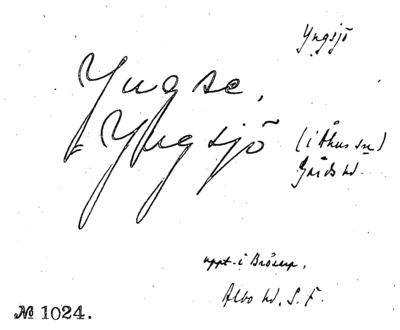 Yngsjö
Yngse,
Yngsjö (i Åhus sn)
Gärds hd.
uppt. i Brösarp,
Albo hd. S. F.
№ 1024.